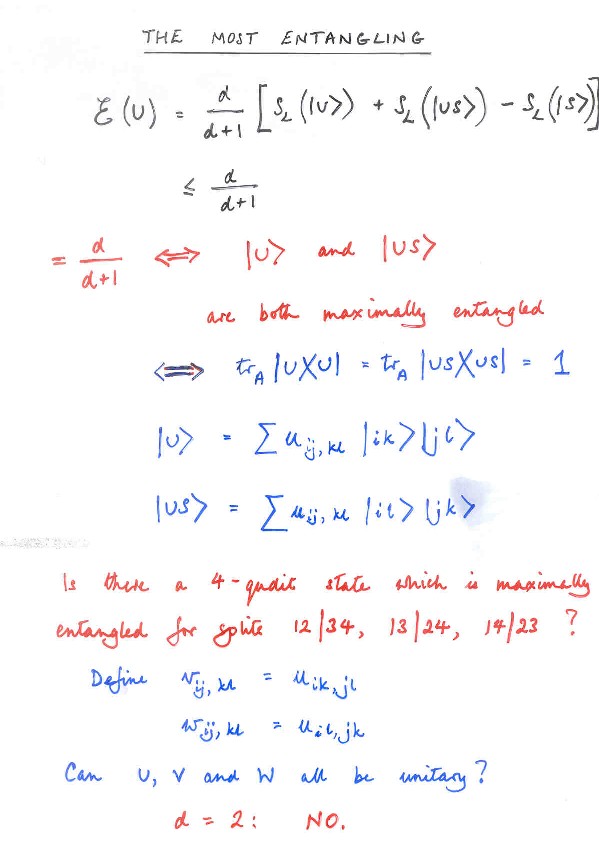 THE MOST ENTANGLING
ℰ(U) = d/(d+1) [S_L(|U⟩) + S_L(|US⟩) − S_L(|S⟩)]
≤ d/(d+1)
= d/(d+1) ⟺ |U⟩ and |US⟩
are both maximally entangled
⟺ tr_A |U⟩⟨U| = tr_A |US⟩⟨US| = 1
|U⟩ = Σ u_{ij,kl} |ik⟩|jl⟩
|US⟩ = Σ u_{ij,kl} |il⟩|jk⟩
Is there a 4-qudit state which is maximally
entangled for splits 12|34, 13|24, 14|23 ?
Define v_{ij,kl} = u_{ik,jl}
w_{ij,kl} = u_{il,jk}
Can U, V and W all be unitary?
d = 2: NO.